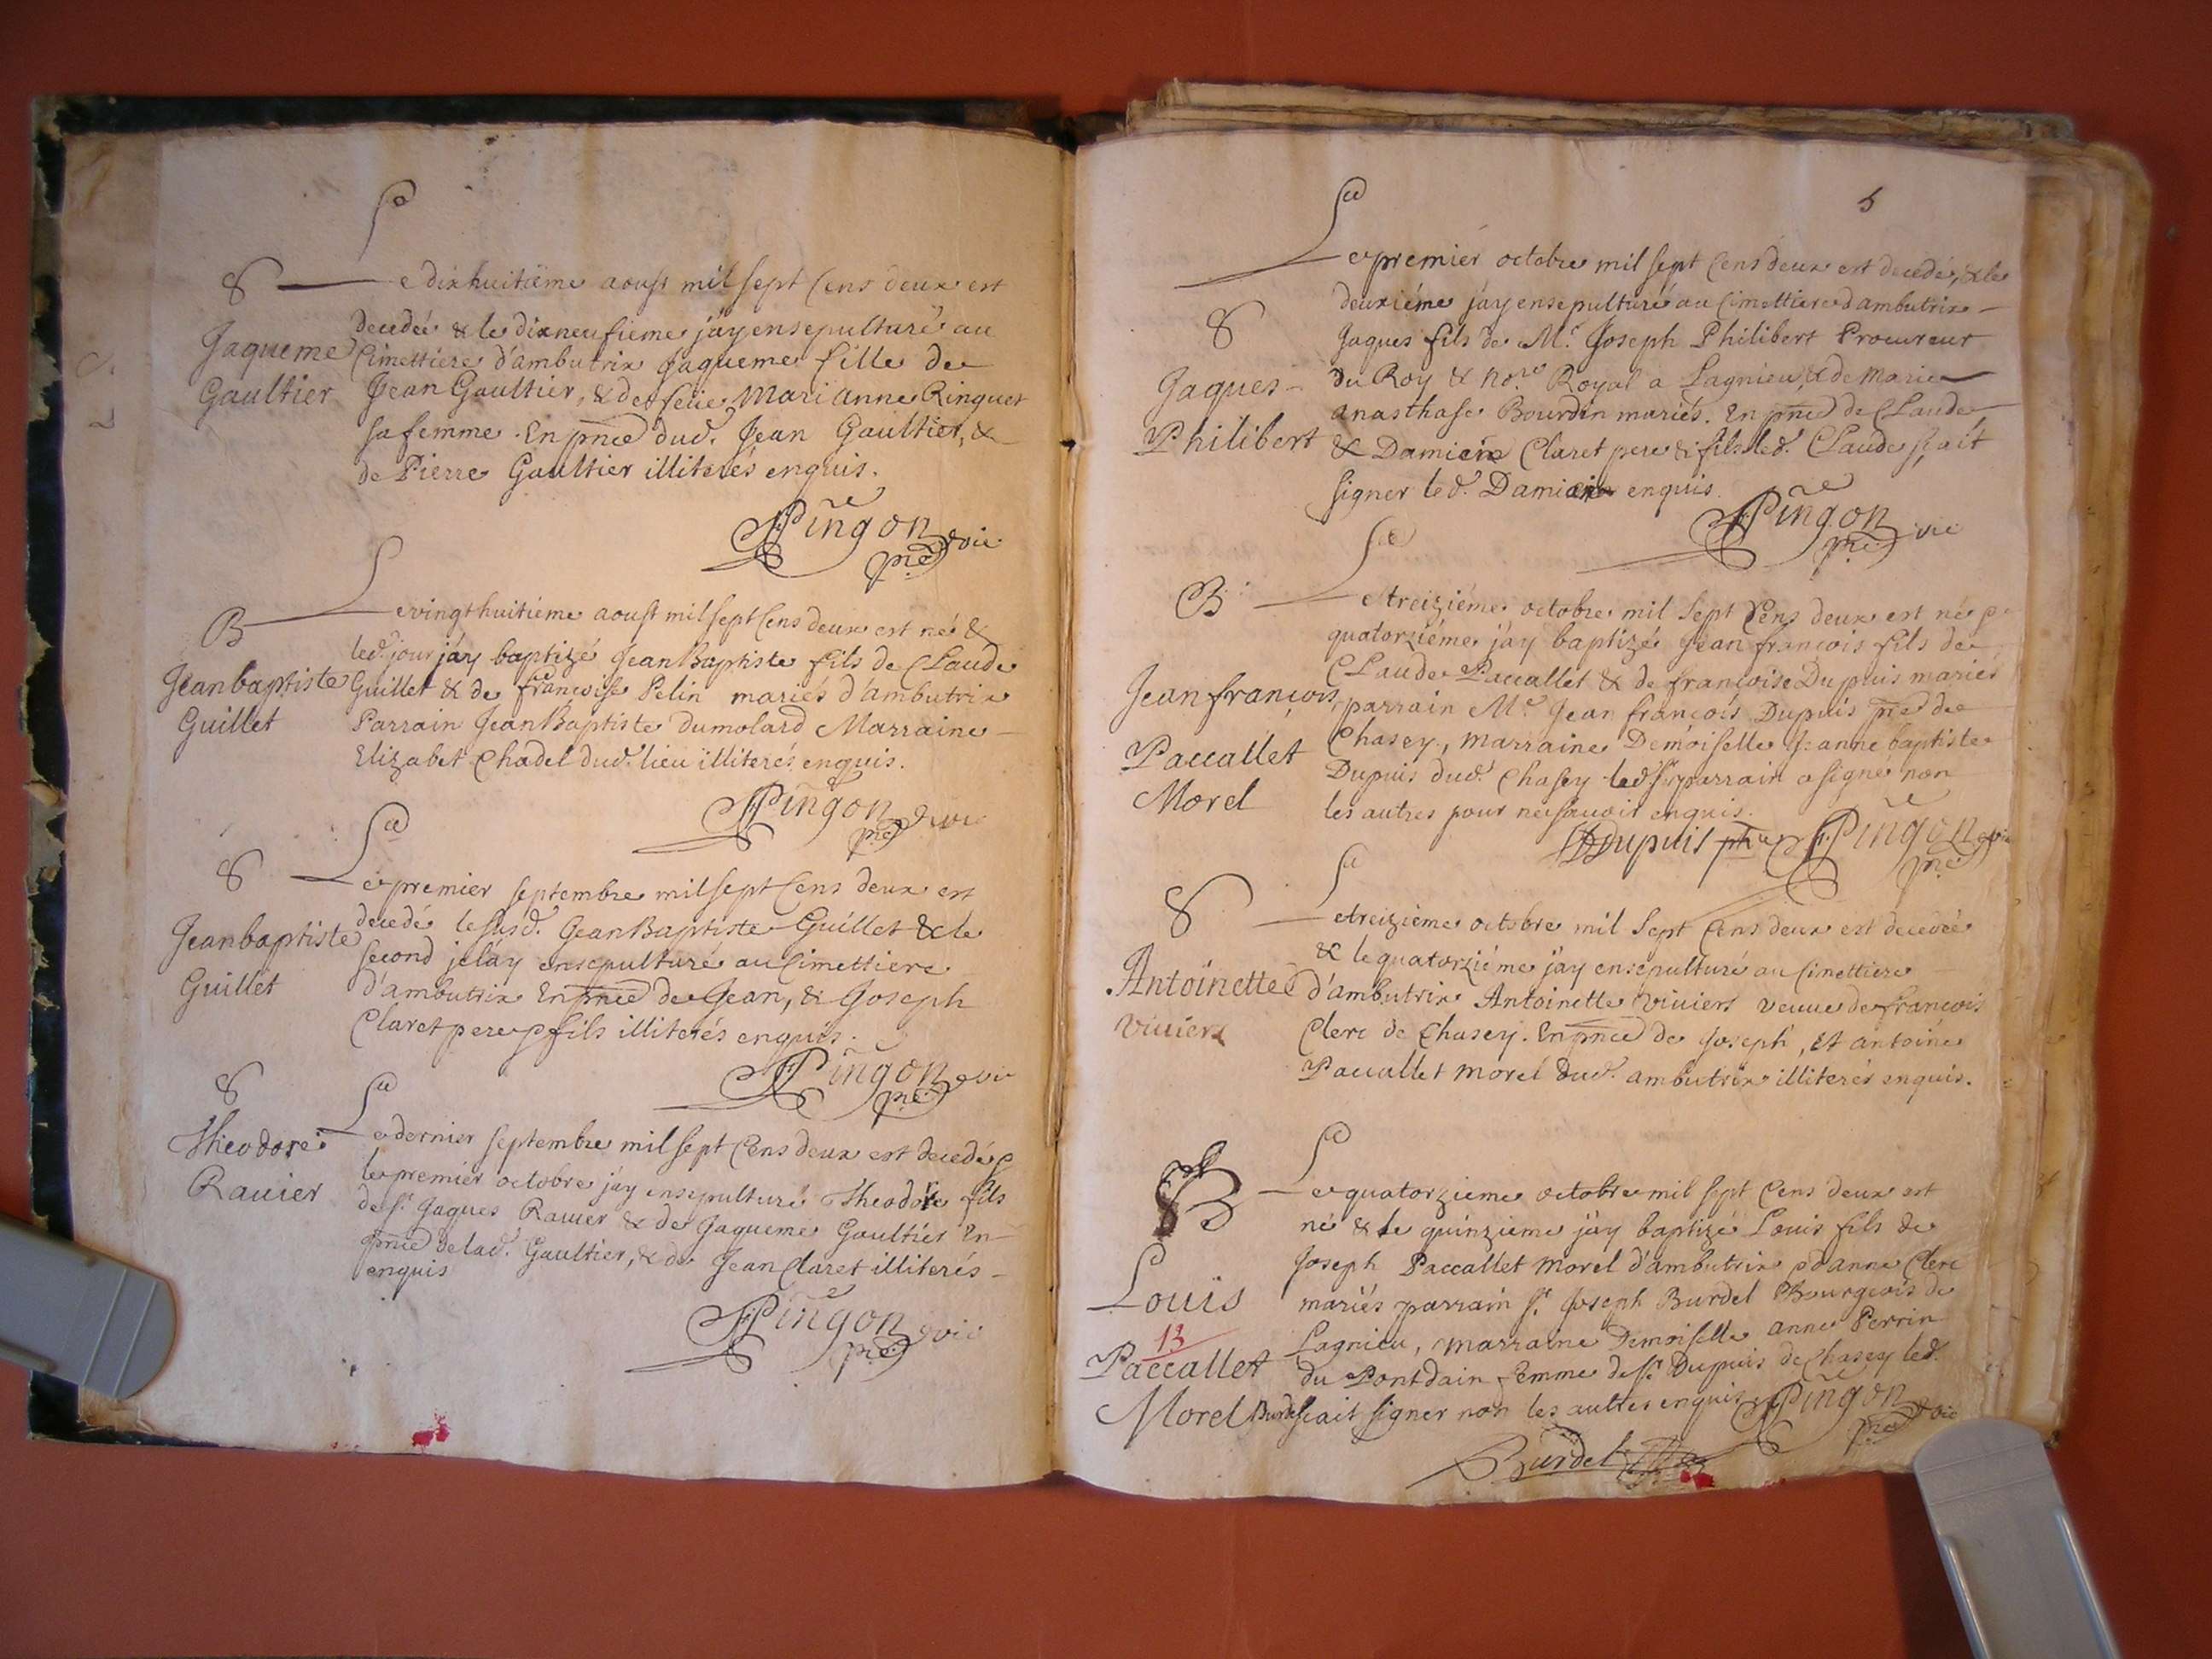 S
Jaqueme
Gaultier
Le dixhuitiéme aoust mil sept Cens deux est
decedée & le dixneufieme jäy ensepulturé au
Cimettiere d'ambutrix Jaqueme fille de
Jean Gaultier, & de feüe Mari Anne Ringuet
sa femme. En pnce dud. Jean Gaultier, &
de Pierre Gaultier illiterés enquis.
Pingon pre vic
B
Jeanbaptiste
Guillet
Le vingt huitiéme aoust mil sept Cens deux est né &
led. jour jäy baptizé Jean Baptiste fils de Claude
Guillet & de françoise Pelin mariés d'ambutrix
Parrain Jean Baptiste dumolard Marraine
Elizabet Chadel dud. lieu illiterés enquis.
Pingon pre vic
S
Jeanbaptiste
Guillet
Le premier septembre mil sept Cens deux est
decedé le susd. Jean Baptiste Guillet & le
second je läy ensepulturé au Cimettiere
d'ambutrix En pnce de Jean, & Joseph
Claret pere & fils illiterés enquis.
Pingon pre vic
S
Theodore
Rauier
Le dernier septembre mil sept Cens deux est decedé &
le premier octobre jäy ensepulturé Theodore fils
de sr. Jaques Rauier & de Jaqueme Gaultier En
pnce de lad. Gaultier, & de Jean Claret illiterés
enquis
Pingon pre vic
5
S
Jaques
Philibert
Le premier octobre mil sept Cens deux est decedé, & le
deuxiéme jäy ensepulturé au Cimettiere d'ambutrix
Jaques fils de Mr. Joseph Philibert Procureur
du Roy & nore. Royal a Lagnieu, & de Marie
anasthase Bourdin mariés. En pnce de Claude
& Damien Claret pere & fils led. Claude sçait
signer led. Damien enquis.
Pingon pre vic
B
Jean françois
Paccallet
Morel
Le treiziéme octobre mil sept Cens deux est né &
quatorziéme jäy baptizé Jean françois fils de
Claude Paccallet & de françoise Dupuis mariés
parrain Mre Jean françois Dupuis pre de
Chasey, marraine Demoiselle Jeanne baptiste
Dupuis dud. Chasey led. sr parrain a signé non
les autres pour ne sçauoir enquis.
Dupuis ptre Pingon pre vic
S
Antoinette
Viuiers
Le treiziéme octobre mil sept Cens deux est decedée
& le quatorziéme jäy ensepulturé au Cimettiere
d'ambutrix Antoinette Viuiers veuue de françois
Clerc de Chasey. En pnce de Joseph, Et antoine
Paccallet morel dud. ambutrix illiterés enquis.
B
Louis
13
Paccallet
Morel
Le quatorzieme octobre mil sept Cens deux est
né & le quinzieme jäy baptizé Louis fils de
Joseph Paccallet Morel d'ambutrix & d'anne Clerc
mariés parrain sr. Joseph Burdel Bourgeois de
Lagnieu, marraine Demoiselle anne Perrin
du Pontdain femme de sr. Dupuis de Chasey led.
Burdel scait signer non les aultes enquis Pingon pre vic
Burdel